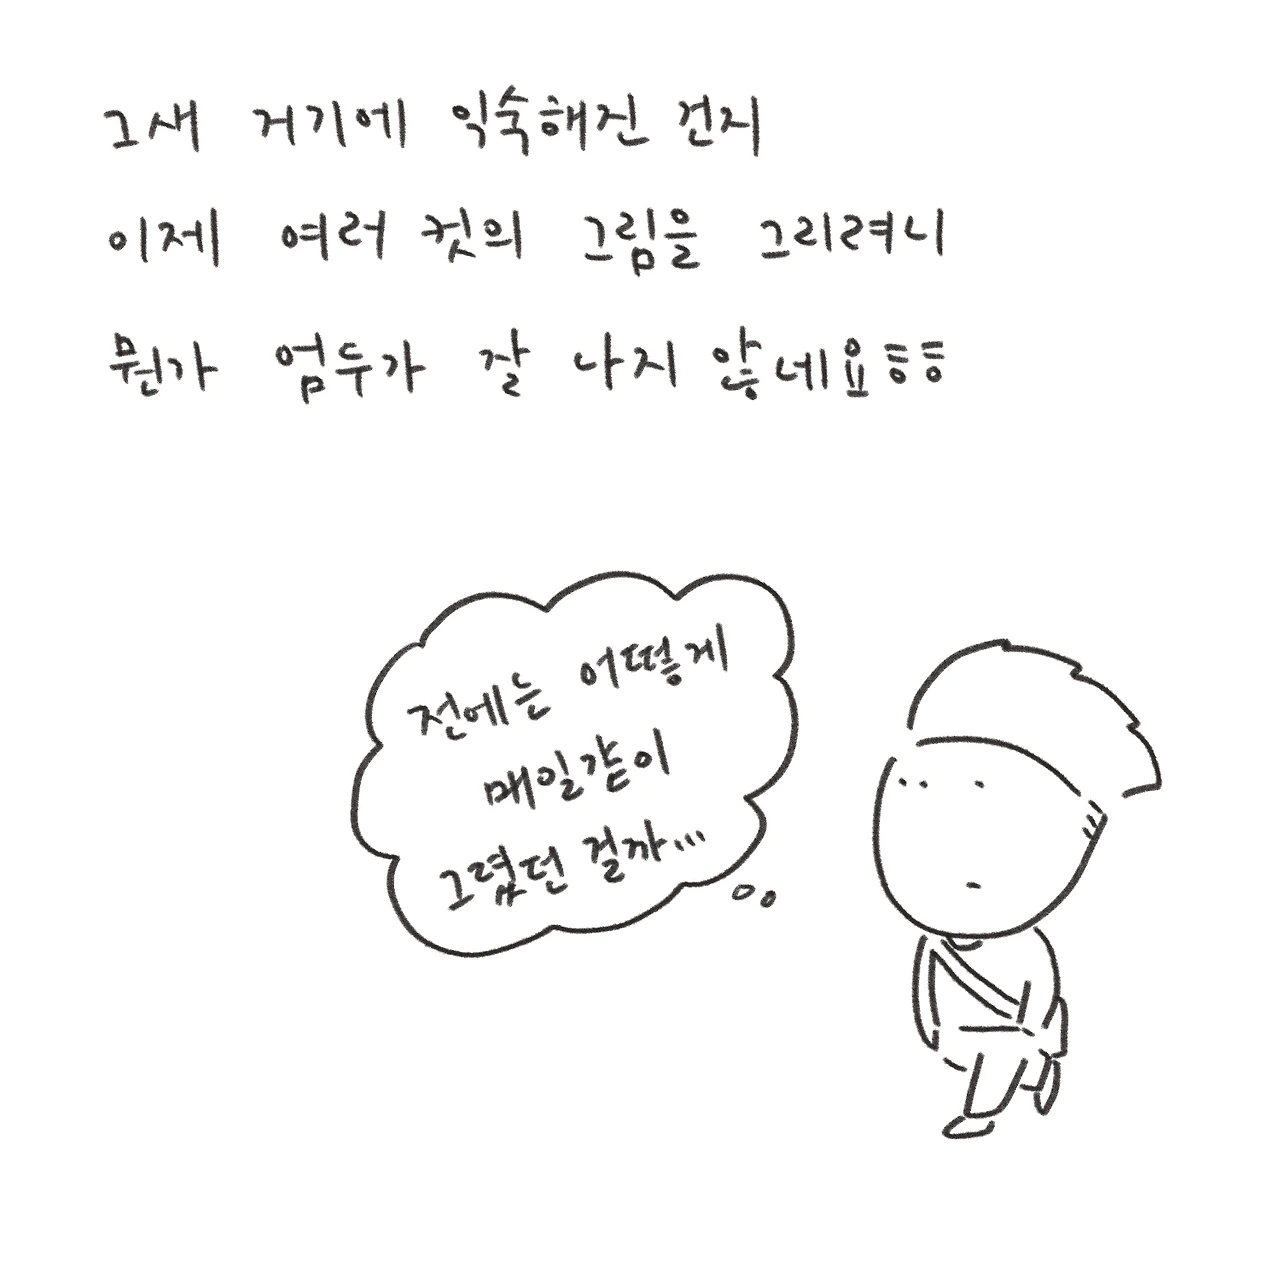 그새 거기에 익숙해진 건지
이제 여러 컷의 그림을 그리려니
뭔가 엄두가 잘 나지 않네요ㅎㅎ
전에는 어떻게
매일같이
그렸던 걸까...